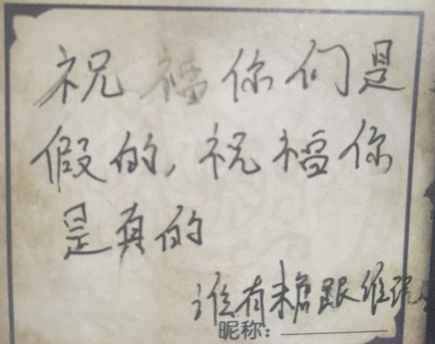 祝福你们是
假的,祝福你
是真的
谁有糖跟维
昵称: